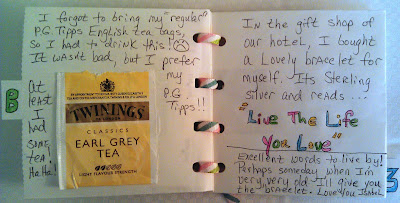 I forgot to bring my "regular"
P.G. Tipps English tea bags,
so I had to drink this! ☹
It wasn't bad, but I prefer
my
P.G.
Tipps!!
B
At
least
I
had
some
tea!
Ha.Ha!
TWININGS
CLASSICS
EARL GREY
TEA
LIGHT FLAVOUR STRENGTH
In the gift shop of
our hotel, I bought
a Lovely bracelet for
myself. Its Sterling
Silver and reads...
"Live The Life
You Love"
Excellent words to live by!
Perhaps someday when I'm
very, very old I'll give you
the bracelet. Love You Isabel
3